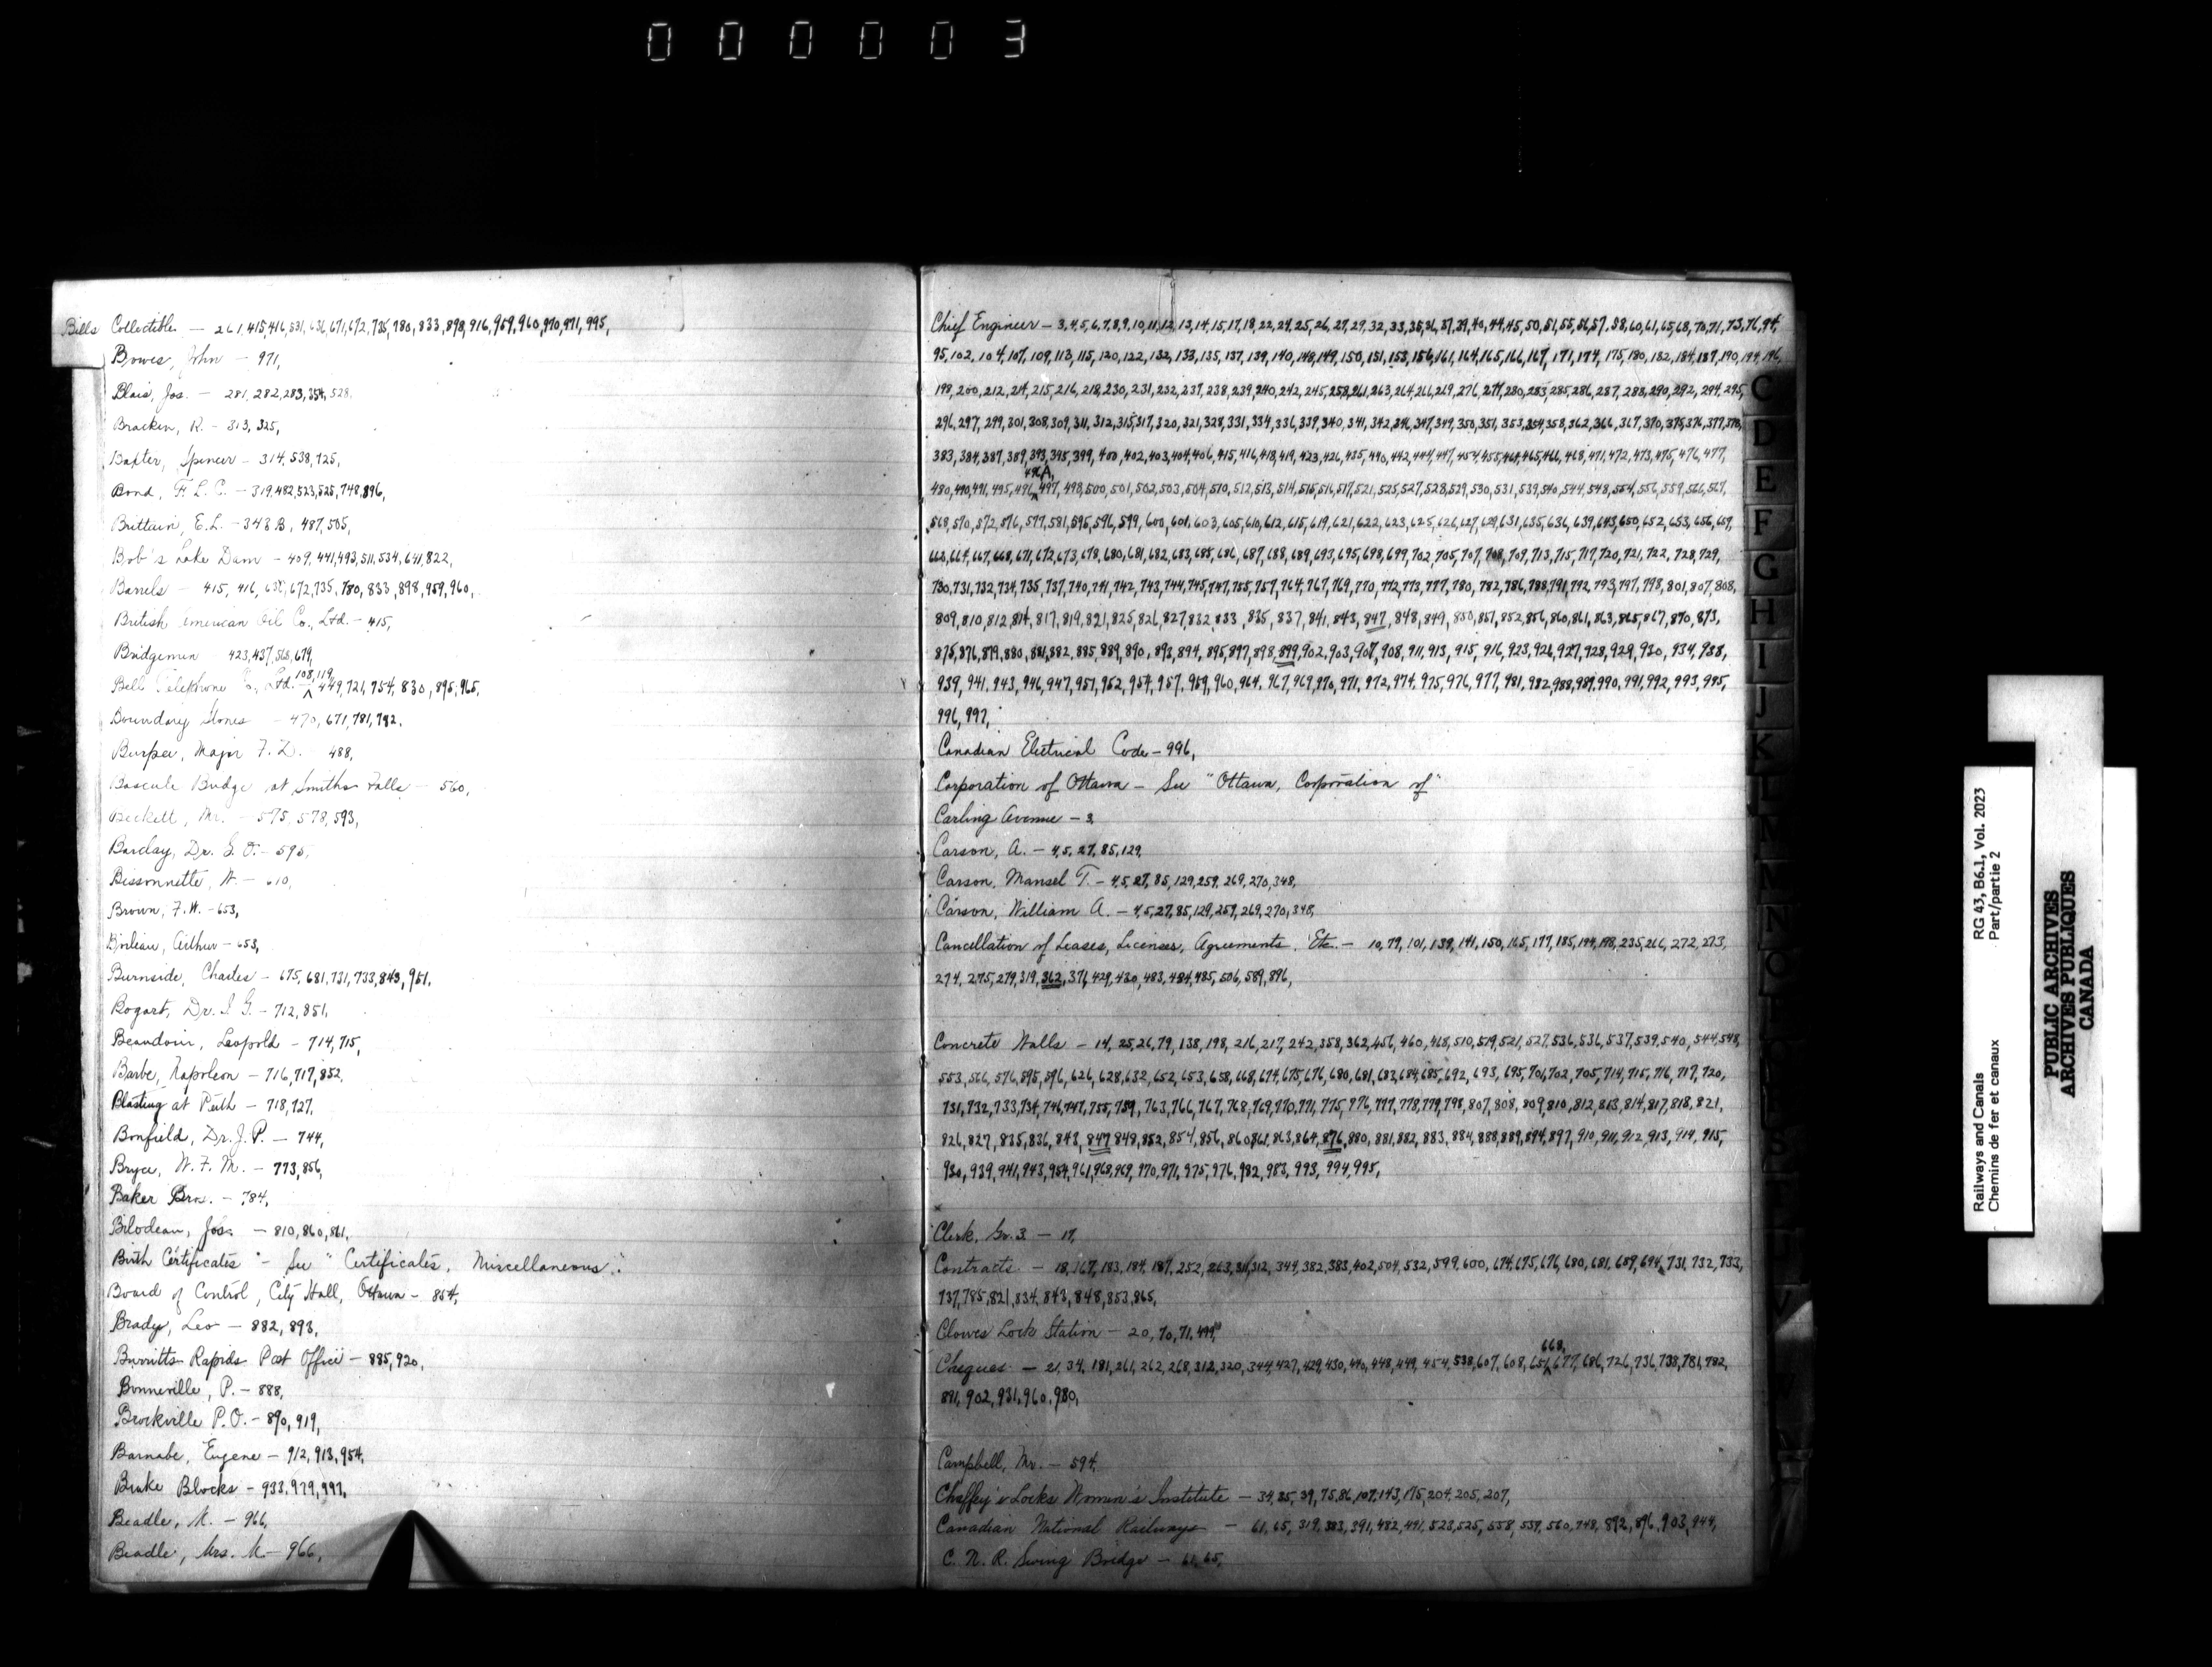 000003
Bills Collectible — 261,415,416,531,636,671,672,735,780,833,898,916,959,960,970,971,995,
Bowes, John — 971,
Blais, Jos. — 281,282,283,354,528,
Bracken, R. — 313,325,
Baxter, Spencer — 314,538,725,
Bond, F. L. C. — 319,482,523,525,748,896,
Brittain, E. L. — 348B, 487,505,
Bob's Lake Dam — 409,441,493,511,534,641,822,
Barrels — 415, 416,636,672,735,780,833,898,959,960,
British American Oil Co., Ltd. — 415,
Bridgemen — 423,437,568,679,
108,119,
Bell Telephone Co., Ltd. — 449,721,754,830,895,965,
Boundary Stones — 470,671,781,782,
Burpee, Major F. D. — 488,
Bascule Bridge at Smiths Falls — 560,
Beckett, Mr. — 575,578,593,
Barclay, Dr. G. O. — 595,
Bissonnette, W. — 610,
Brown, F. W. — 653,
Boileau, Arthur — 653,
Burnside, Charles — 675,681,731,733,843,951,
Bogart, Dr. I. G. — 712,851,
Beaudoin, Leopold — 714,715,
Barbe, Napoleon — 716,717,852,
Blasting at Perth — 718,727,
Bonfield, Dr. J. P. — 744,
Bryce, W. F. M. — 773,856,
Baker Bros. — 784,
Bilodeau, Jos. — 810,860,861,
Birth Certificates — See "Certificates, Miscellaneous".
Board of Control, City Hall, Ottawa — 854,
Brady, Leo — 882,893,
Burritts Rapids Post Office — 885,920,
Bonneville, P. — 888,
Brockville P.O. — 890,919,
Barnabe, Eugene — 912,913,954,
Brake Blocks — 933,979,997,
Beadle, K. — 966,
Beadle, Mrs. K — 966,
Chief Engineer — 3,4,5,6,7,8,9,10,11,12,13,14,15,17,18,22,24,25,26,27,29,32,33,35,36,37,39,40,44,45,50,51,55,56,57,58,60,61,65,68,70,71,73,76,94,
95,102,104,107,109,113,115,120,122,132,133,135,137,139,140,148,149,150,151,153,156,161,164,165,166,167,171,174,175,180,182,184,187,190,194,196,
198,200,212,214,215,216,218,230,231,232,237,238,239,240,242,245,258,261,263,264,266,269,276,277,280,283,285,286,287,288,290,292,294,295,
296,297,299,301,308,309,311,312,315,317,320,321,328,331,334,336,339,340,341,342,346,347,349,350,351,353,354,358,362,366,367,370,375,376,377,378,
383,384,387,389,393,395,399,400,402,403,404,406,415,416,418,419,423,426,435,440,442,444,447,454,455,464,465,466,468,471,472,473,475,476,477,
496A,
480,490,491,495,496,497,498,500,501,502,503,504,510,512,513,514,515,516,517,521,525,527,528,529,530,531,539,540,544,548,554,556,559,566,567,
568,570,572,576,577,581,595,596,599,600,601,603,605,610,612,615,619,621,622,623,625,626,627,629,631,635,636,639,643,650,652,653,656,659,
663,664,667,668,671,672,673,678,680,681,682,683,685,686,687,688,689,693,695,698,699,702,705,707,708,709,713,715,717,720,721,722,728,729,
730,731,732,734,735,737,740,741,742,743,744,745,747,755,757,764,767,769,770,772,773,777,780,782,786,788,791,792,793,797,798,801,807,808,
809,810,812,814,817,819,821,825,826,827,832,833,835,837,841,843,847,848,849,850,851,852,856,860,861,863,865,867,870,873,
875,876,879,880,881,882,885,889,890,893,894,895,897,898,899,902,903,907,908,911,913,915,916,923,926,927,928,929,930,934,938,
939,941,943,946,947,951,952,954,957,959,960,964,967,969,970,971,972,974,975,976,977,981,982,988,989,990,991,992,993,995,
996,997,
Canadian Electrical Code — 996,
Corporation of Ottawa — See "Ottawa, Corporation of"
Carling Avenue — 3,
Carson, A. — 4,5,27,85,129,
Carson, Mansel T. — 4,5,27,85,129,259,269,270,348,
Carson, William A. — 4,5,27,85,129,259,269,270,348,
Cancellation of Leases, Licenses, Agreements, Etc. — 10,79,101,139,141,150,165,177,185,194,198,235,266,272,273,
274,275,279,319,362,371,429,430,483,484,485,506,589,896,
Concrete Walls — 14,25,26,79,138,198,216,217,242,358,362,456,460,468,510,519,521,527,536,536,537,539,540,544,548,
553,566,576,595,596,626,628,632,652,653,658,668,674,675,676,680,681,683,684,685,692,693,695,701,702,705,714,715,716,717,720,
731,732,733,734,746,747,755,759,763,766,767,768,769,770,771,775,776,777,778,779,798,807,808,809,810,812,813,814,817,818,821,
826,827,835,836,843,847,848,852,854,856,860,861,863,864,876,880,881,882,883,884,888,889,894,897,910,911,912,913,914,915,
930,939,941,943,954,961,968,969,970,971,975,976,982,983,993,994,995,
x
Clerk, Gr. 3 — 17,
Contracts — 18,167,183,184,187,252,263,311,312,344,382,383,402,504,532,599,600,674,675,676,680,681,689,694,731,732,733,
737,785,821,834,843,848,853,865,
Clowes Lock Station — 20,70,71,499,
668,
Cheques — 21,34,181,261,262,268,312,320,344,427,429,430,440,448,449,454,538,607,608,651,677,686,726,736,738,781,782,
891,902,931,960,980,
Campbell, Mr. — 594,
Chaffey's Locks Women's Institute — 34,35,39,75,86,107,143,175,204,205,207,
Canadian National Railways — 61,65,319,383,391,482,491,523,525,558,559,560,748,892,896,903,944,
C. N. R. Swing Bridge — 61,65,
C
D
E
F
G
H
I
J
K
L
M
N
O
Railways and Canals
Chemins de fer et canaux
RG 43, B6.1, Vol. 2023
Part/partie 2
PUBLIC ARCHIVES
ARCHIVES PUBLIQUES
CANADA